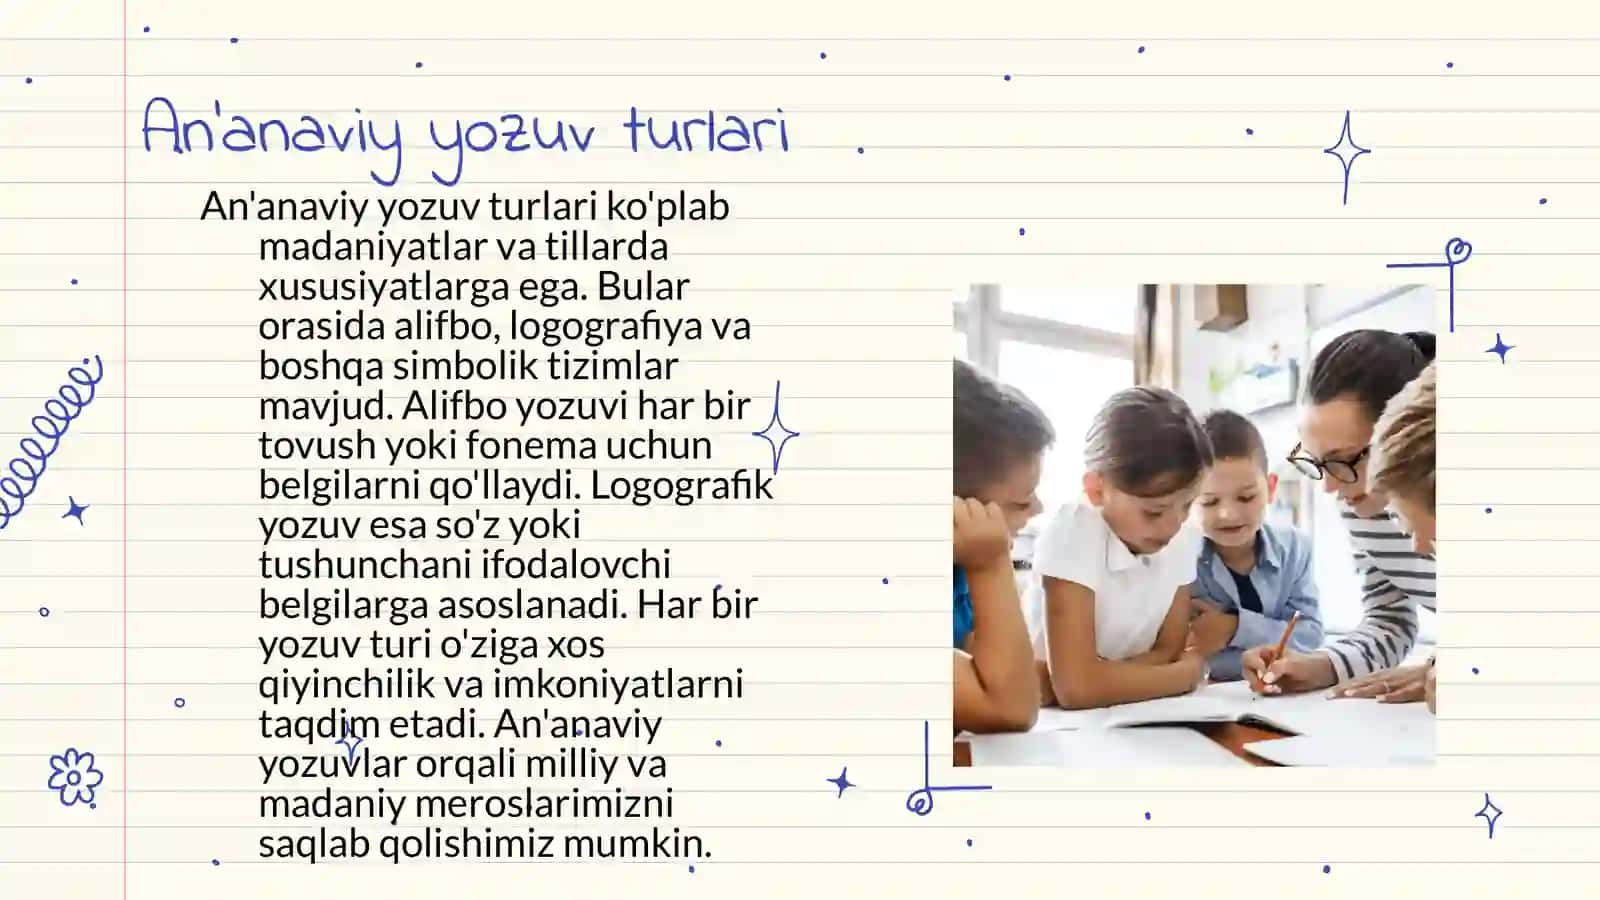 An'anaviy yozuv turlari
An'anaviy yozuv turlari ko'plab
madaniyatlar va tillarda
xususiyatlarga ega. Bular
orasida alifbo, logografiya va
boshqa simbolik tizimlar
mavjud. Alifbo yozuvi har bir
tovush yoki fonema uchun
belgilarni qo'llaydi. Logografik
yozuv esa so'z yoki
tushunchani ifodalovchi
belgilarga asoslanadi. Har bir
yozuv turi o'ziga xos
qiyinchilik va imkoniyatlarni
taqdim etadi. An'anaviy
yozuvlar orqali milliy va
madaniy meroslarimizni
saqlab qolishimiz mumkin.